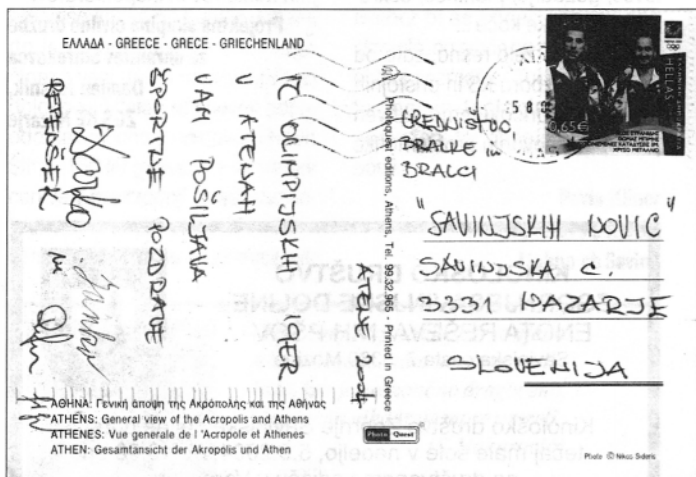 ΕΛΛΑΔΑ - GREECE - GRECE - GRIECHENLAND
IZ OLIMPIJSKIH IGER
V ATENAH
VAM POŠILJAVA
ŠPORTNE POZDRAVE
ATENE 2004
REPENŠEK
Photoquest editions, Athens, Tel. 99.32.965 - Printed in Greece
HELLAS
0,65€
ΘΩΜΑΣ ΜΠΙΜΗΣ
ΧΡΥΣΟ ΜΕΤΑΛΛΙΟ
UREDNIŠTVO,
BRALKE in
BRALCI
"SAVINJSKIH NOVIC"
SAVINJSKA C.
3331 NAZARJE
SLOVENIJA
ΑΘΗΝΑ: Γενική άποψη της Ακρόπολης και της Αθήνας
ATHENS: General view of the Acropolis and Athens
ATHENES: Vue generale de l 'Acropole et Athenes
ATHEN: Gesamtansicht der Akropolis und Athen
Photo Quest
Photo © Nikos Sideris